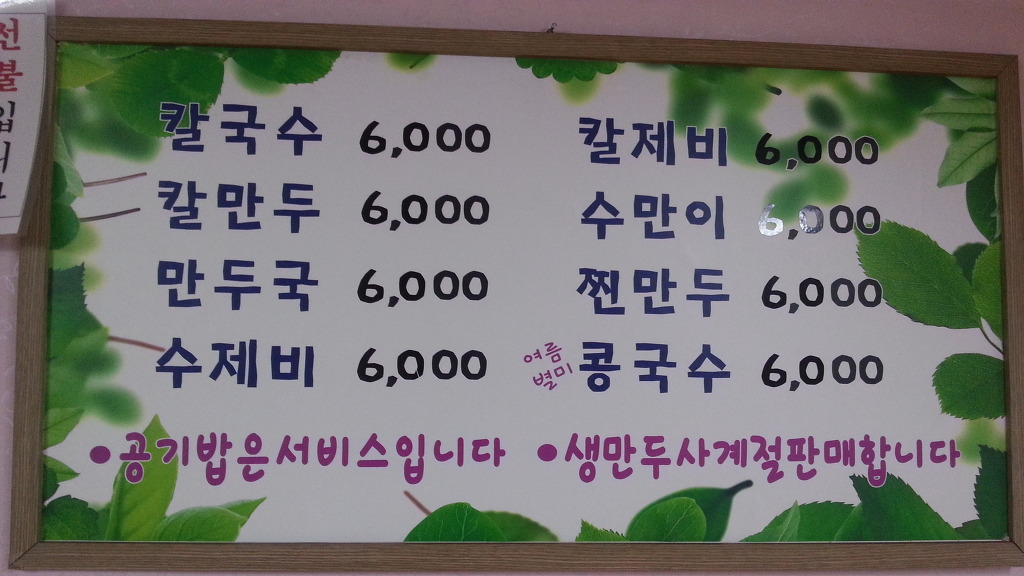 선불입니
칼국수 6,000
칼만두 6,000
만두국 6,000
수제비 6,000
칼제비 6,000
수만이 6,000
찐만두 6,000
여름별미 콩국수 6,000
•공기밥은서비스입니다
•생만두사계절판매합니다